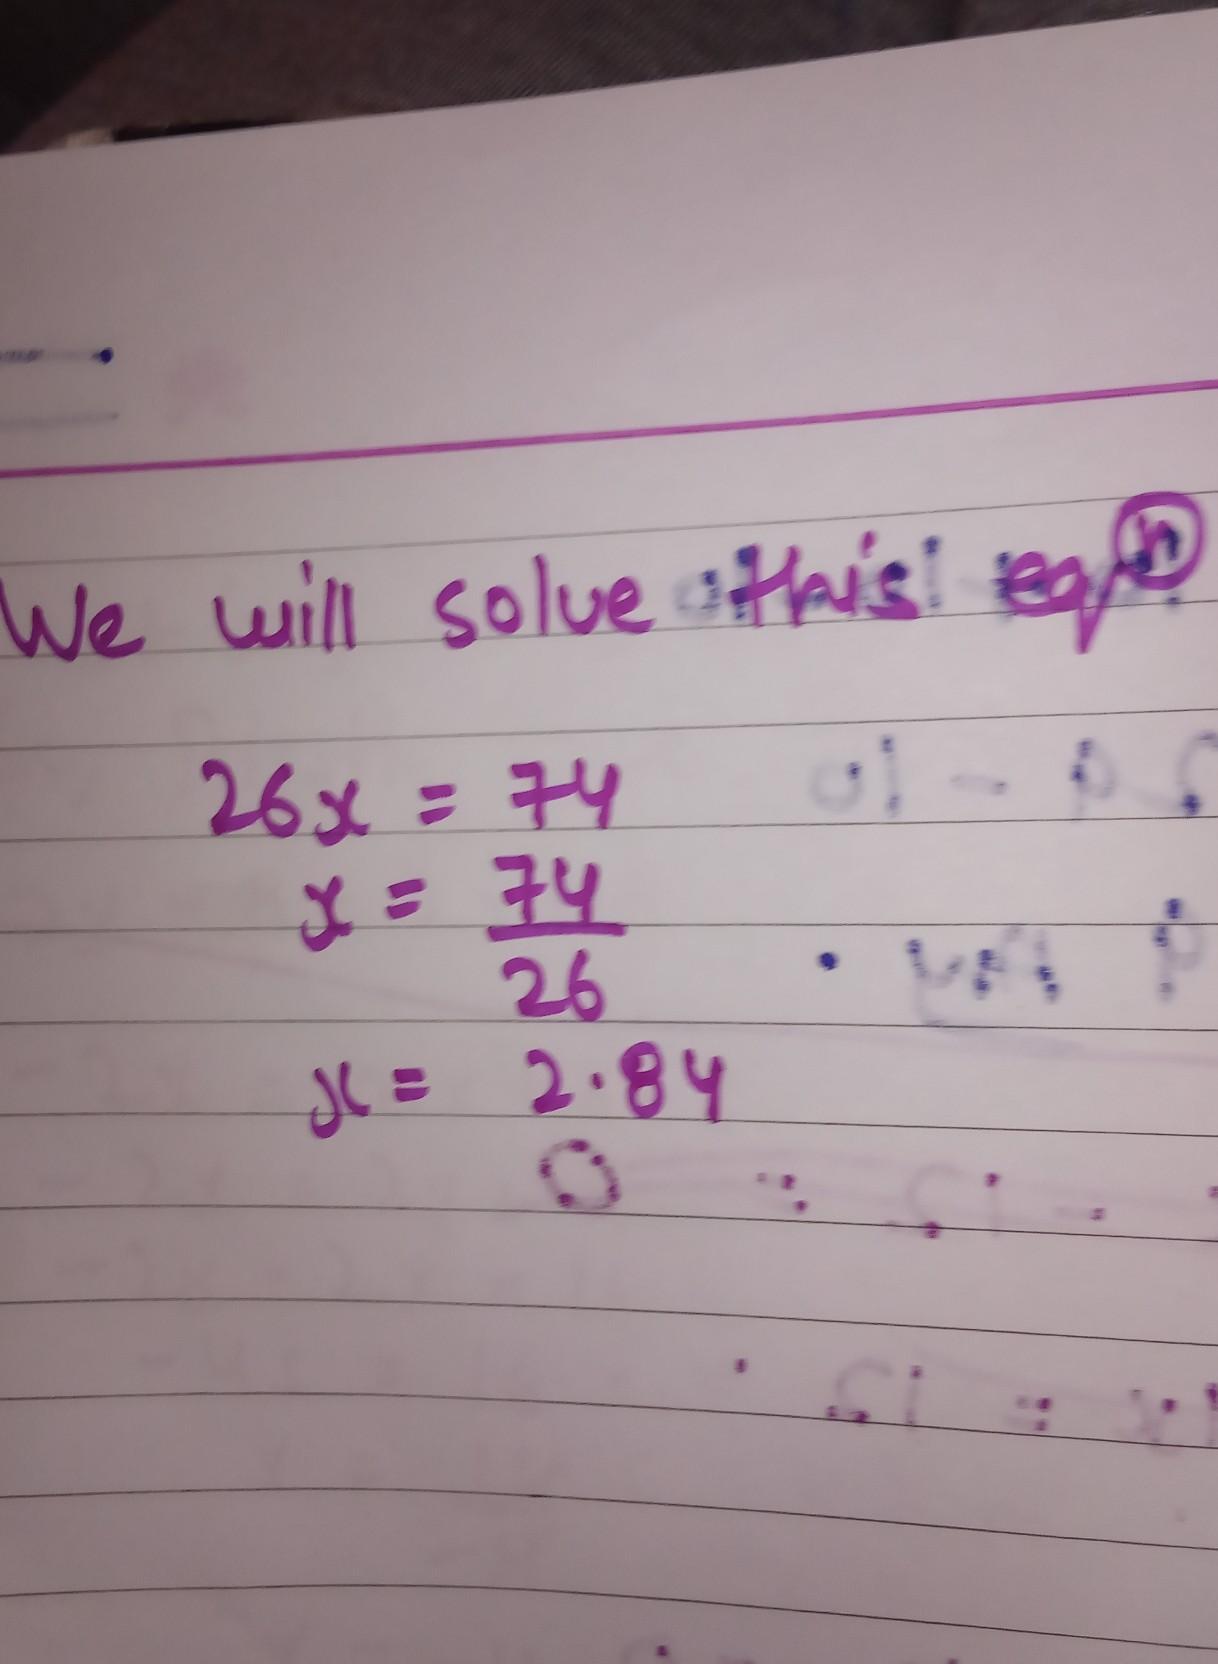 We will solve this eqⁿ
26x = 74
x = 74
26
x = 2.84